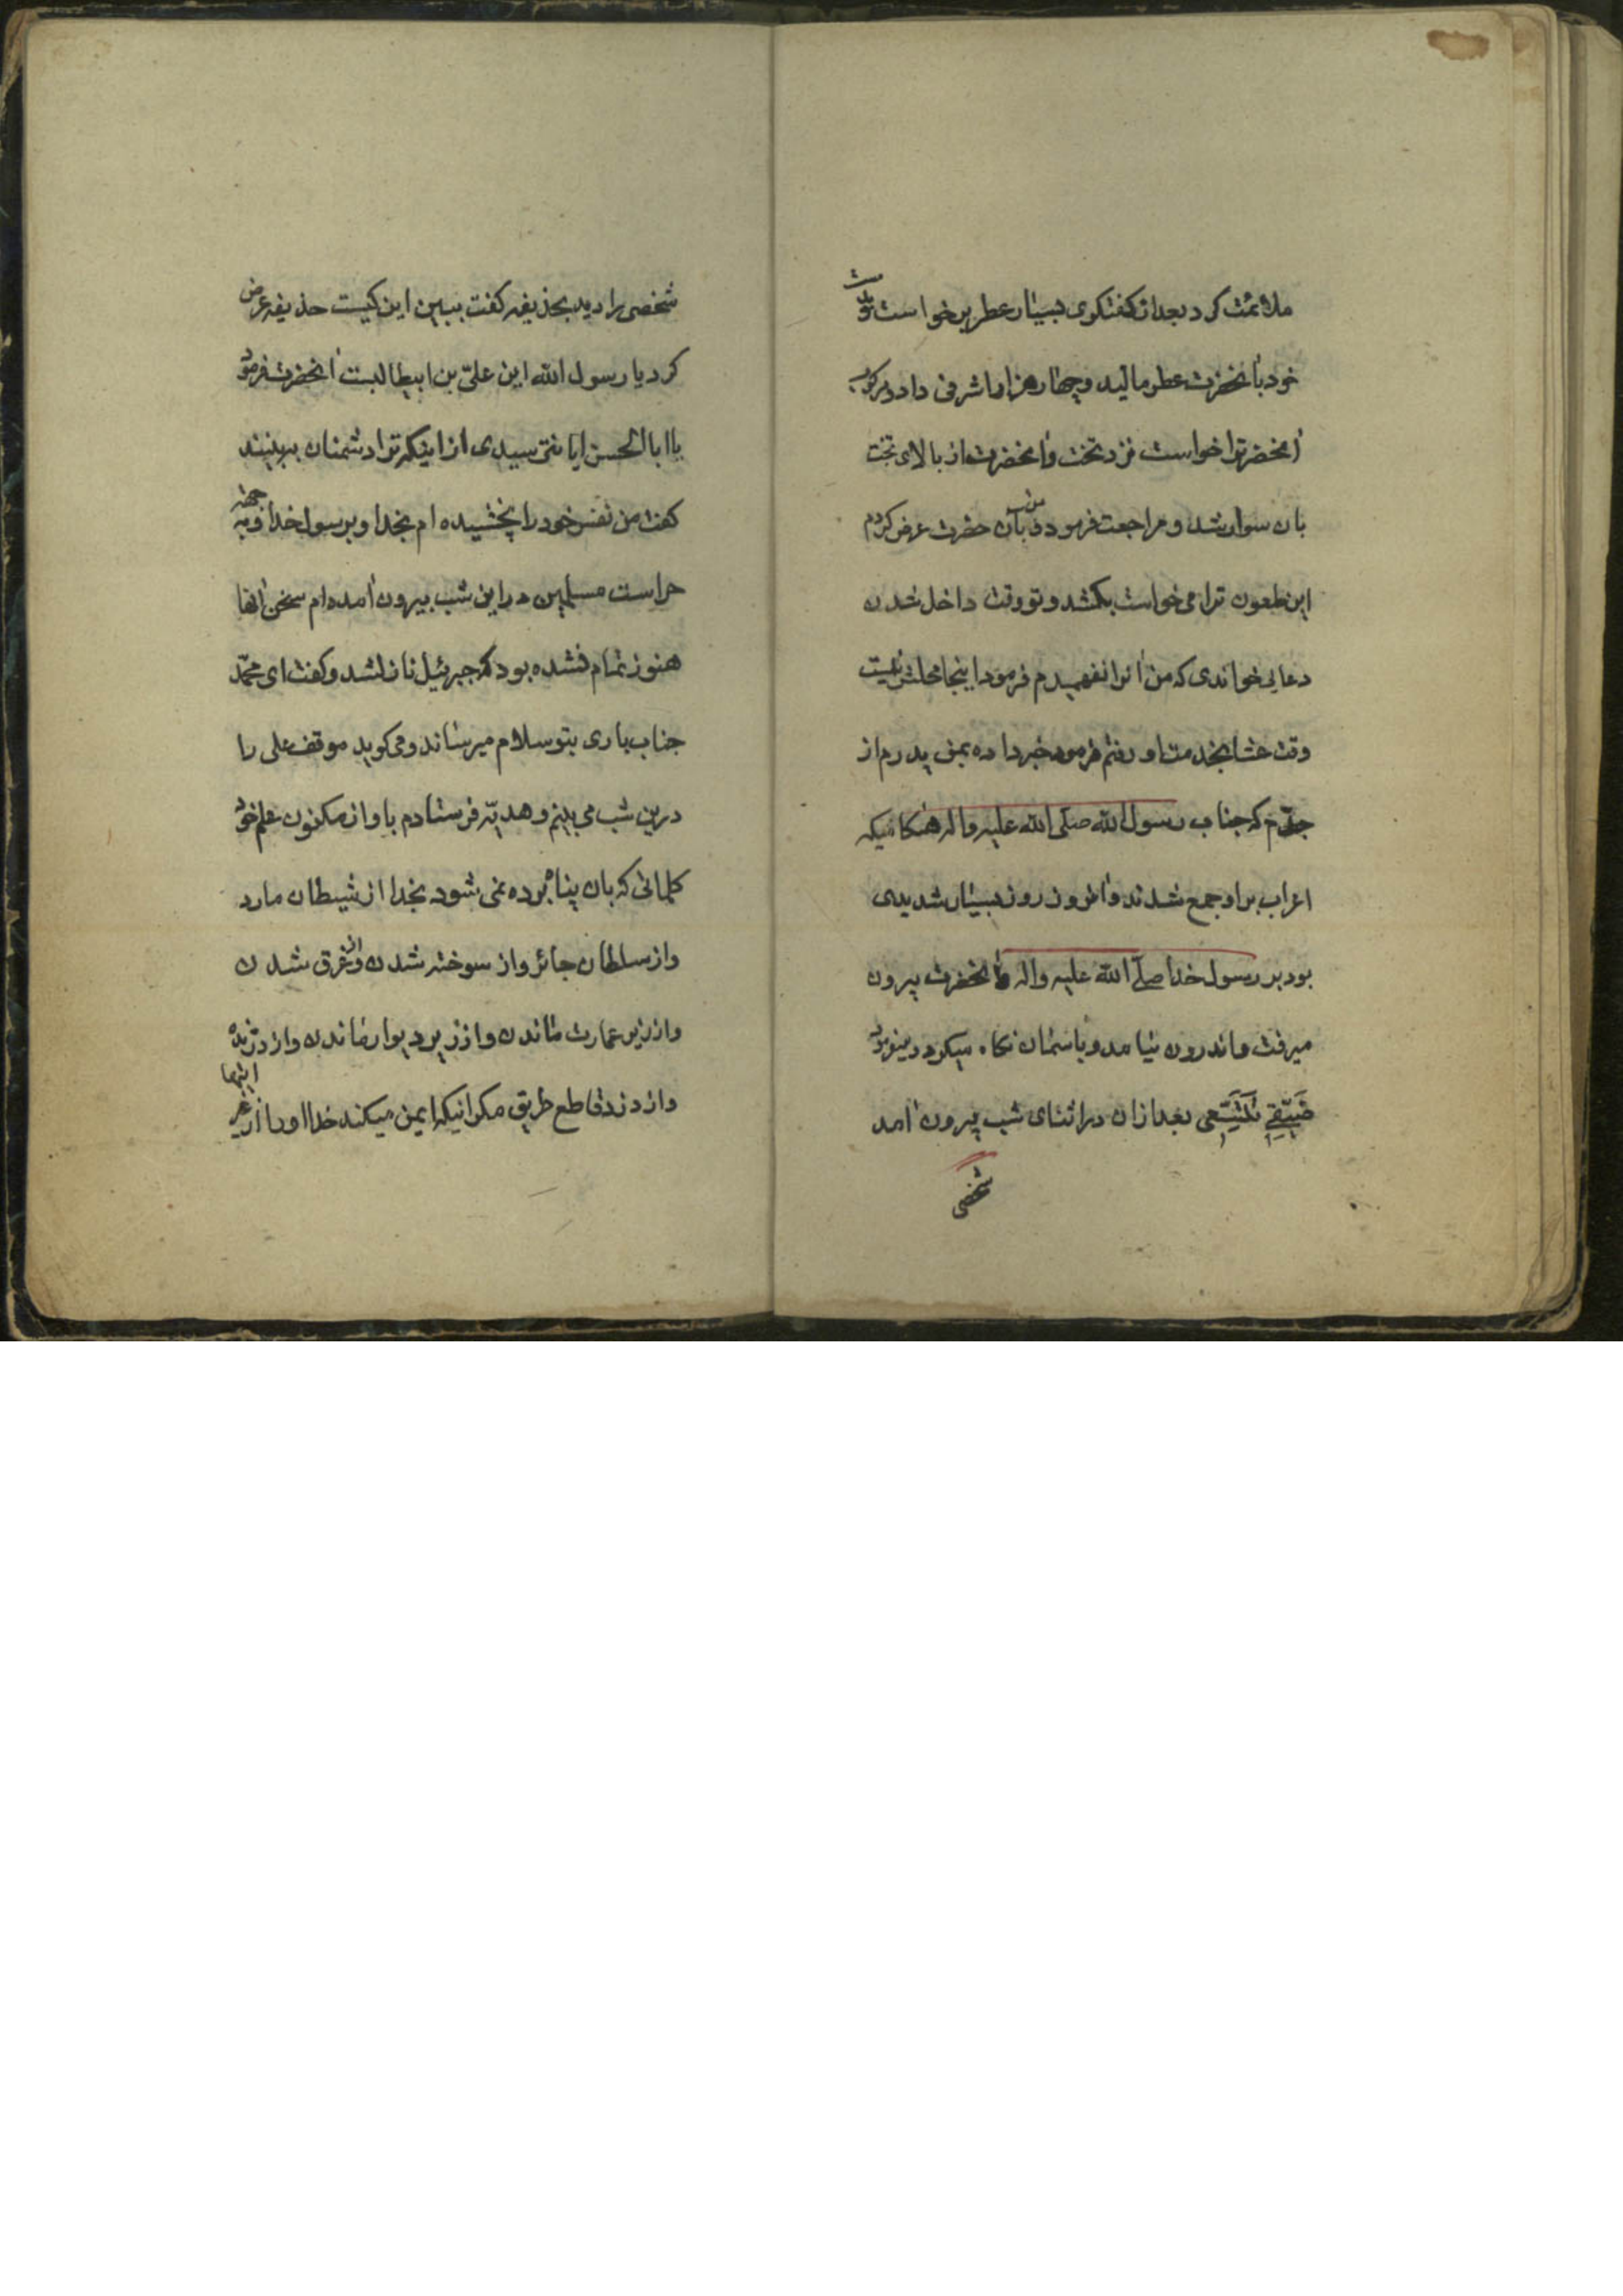 ملائمت کرد بعد از کفتکوی بسیار عطر برخواست و بدست
خود بانحضرت عطر مالید و چهار هزار اشرفی داد و مرکوب
آنحضرترا خواست نزد تخت و آنحضرت از بالای تخت
بان سوار شد و مراجعت فرمود من بآن حضرت عرض کردم
این ملعون ترا می خواست بکشد و تو وقت داخل شدن
دعایی خواندی که من آنرا نفهمیدم فرمود اینجا محلش نیست
وقت عشا بخدمت او رفتم فرمود خبر داده بمن پدرم از
جدّم که جناب رسول الله صلی الله علیه و اله هنکامیکه
اعراب بر او جمع شدند و انروز روز بسیار شدیدی
بود بر رسول خدا صلی الله علیه و اله و آنحضرت بیرون
میرفت و اندرون میامد و باسمان نکاه میکرد و میفرمود
ضَیّقی تَتَّسِعی بعد از ان در اثنای شب بیرون آمد
شخصی
شخصی را دید بحذیفه کفت ببین این کیست حذیفه عرض
کرد یا رسول الله این علی بن ابیطالبست آنحضرت فرمود
یا ابا الحسن ایا نترسیدی از اینکه ترا دشمنان ببینند
کفت من نفس خود را بخشیده ام بخدا و برسول خدا و بجهة
حراست مسلمین در این شب بیرون آمده ام سخن آنها
هنوز تمام نشده بود که جبرئیل نازلشد و کفت ای محمّد
جناب باری بتو سلام میرساند و می کوید موقف علی را
درین شب می بینم و هدیّه فرستادم باو از مکنون علم خود
کلماتی که بان پناه برده نمی شود بخدا از شیطان مارد
و از سلطان جائر و از سوخته شدن و از غرق شدن
و از زیر عمارت ماندن و از زیر دیوار ماندن و از درنده
و از دزد قاطع طریق مکر انیکه ایمن میکند خدا او را از شر اینها